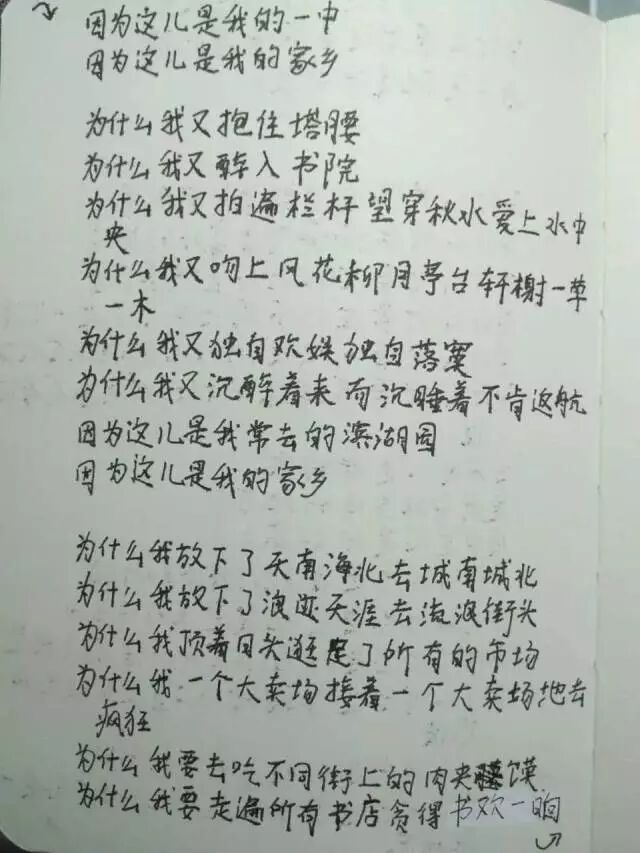 因为这儿是我的一中
因为这儿是我的家乡
为什么我又抱住塔腰
为什么我又醉入书院
为什么我又拍遍栏杆望穿秋水爱上水中
央
为什么我又吻上风花柳月亭台轩榭一草
一木
为什么我又独自欢娱独自落寞
为什么我又沉醉着来而沉睡着不肯返航
因为这儿是我常去的滨湖园
因为这儿是我的家乡
为什么我放下了天南海北去城南城北
为什么我放下了浪迹天涯去流浪街头
为什么我顶着日头逛完了所有的市场
为什么我一个大卖场接着一个大卖场地去
疯狂
为什么我要去吃不同街上的肉夹馍
为什么我要走遍所有书店贪得书欢一晌